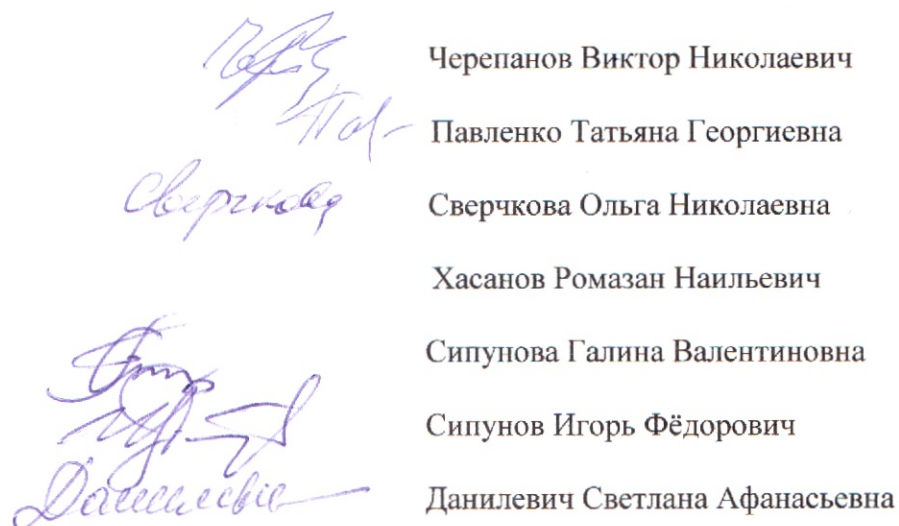 Черепанов Виктор Николаевич
Павленко Татьяна Георгиевна
Сверчкова Сверчкова Ольга Николаевна
Хасанов Ромазан Наильевич
Сипунова Галина Валентиновна
Сипунов Игорь Фёдорович
Данилевич Данилевич Светлана Афанасьевна